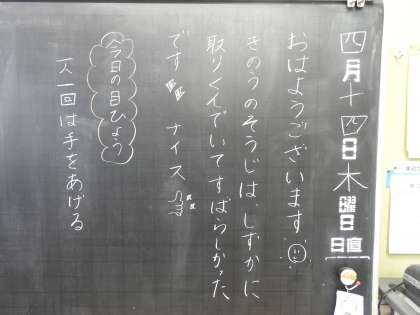 四月十四日木曜日
日直
おはようございます
きのうのそうじは、しずかに
取りくんでいてすばらしかった
です ナイス
今日の目ひょう
一人一回は手をあげる